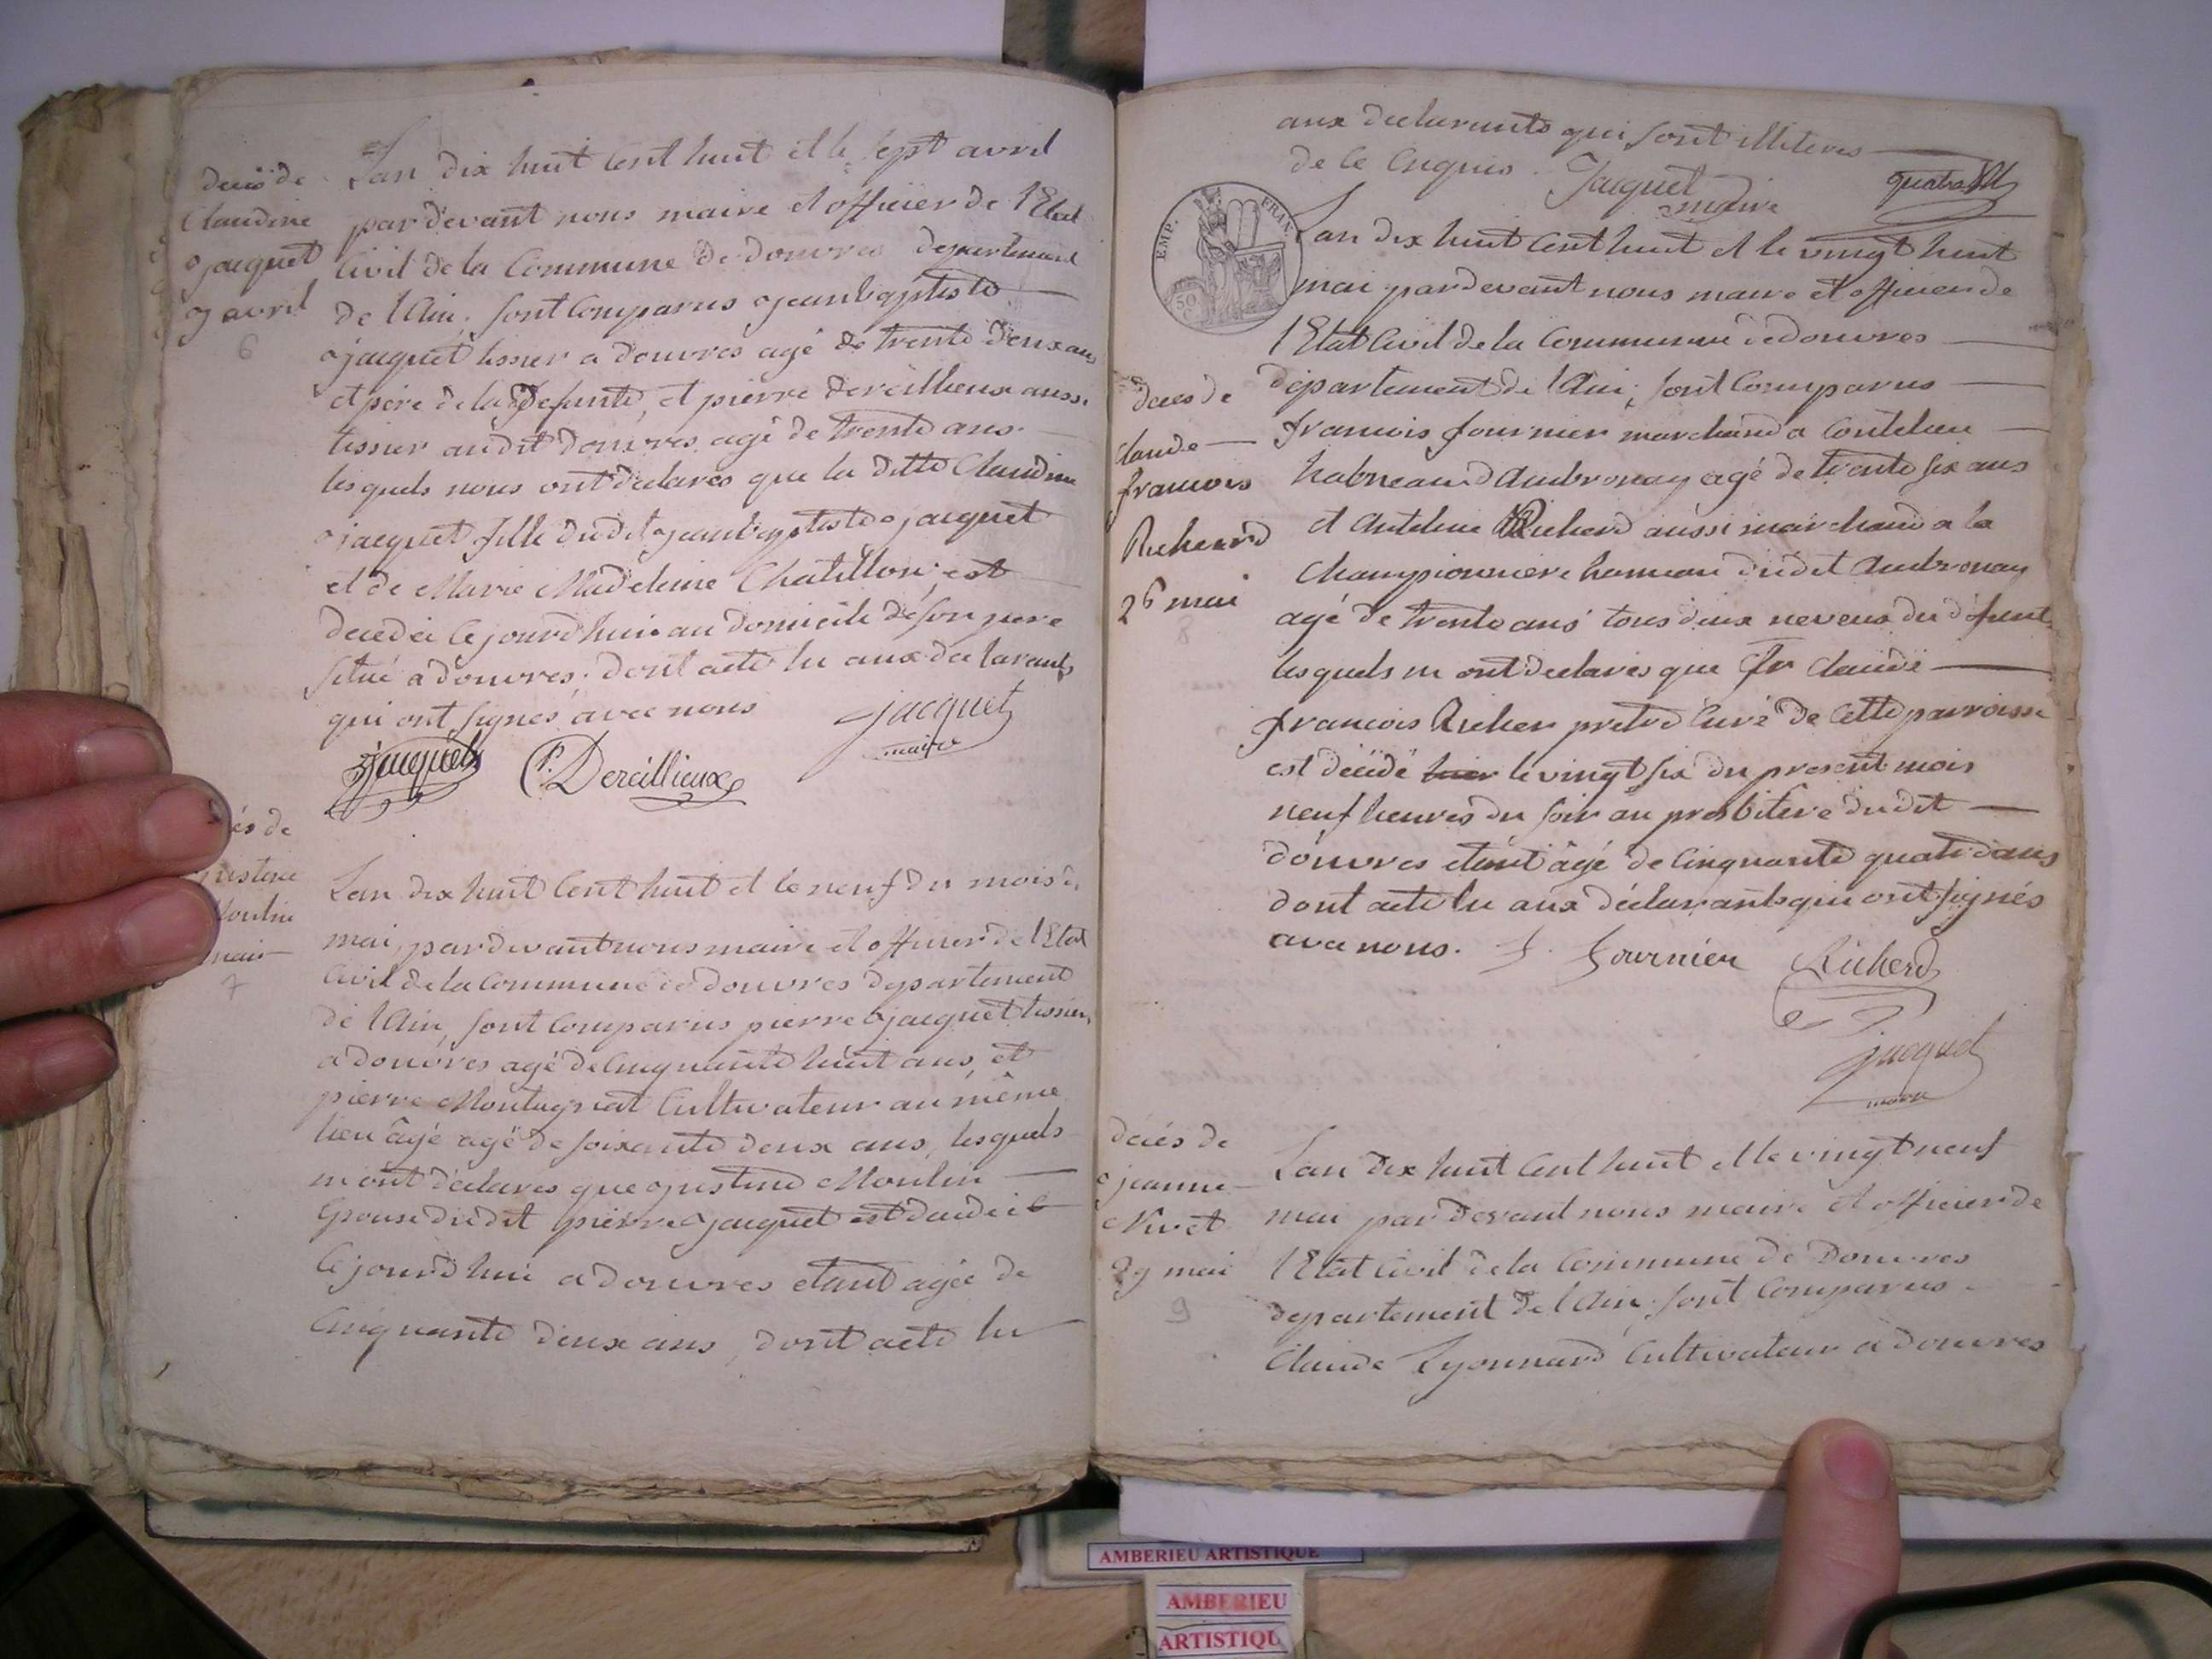 decès de
Claudine
jacquet
7 avril
6
Lan dix huit cent huit et le sept avril
pardevant nous maire et officier de l'Etat
Civil de la Commune de douvres departement
de l'Ain, sont Comparus jeanbaptiste
jacquet tissier a douvres agé de trente deux ans
et père de la defunte, et pierre Dereillieux aussi
tissier audit douvres agé de trente ans
lesquels nous ont declares que la ditte Claudine
jacquet fille dudit jeanbaptiste jacquet
et de Marie Madeleine Chatillon, est
decedée cejourdhui au domicile de son pere
situé a douvres, dont acte lu aux declarants
qui ont signés avec nous
jacquet
maire
Jacquet
P. Dereillieux
és de
justine
Moulin
mai
7
Lan dix huit Cent huit et le neuf du mois de
mai, pardevant nous maire et officier de l'Etat
Civil de la Commune de douvres departement
de l'Ain, sont Comparus pierre jacquet tissier
a douvres agé de Cinquante huit ans, et
pierre Montagnat Cultivateur au même
lieu âgé agé de soixante deux ans, lesquels
m ont déclares que justine Moulin
Epouse dudit pierre jacquet est decedée
Cejourdhui a douvres etant agée de
Cinquante deux ans, dont acte lu
aux declarants qui sont illiteres
de ce Enquis. Jacquet
maire
EMP. FRAN.
50
C
decès de
Claude
francois
Richerd
26 mai
8
Lan dix huit Cent huit et le vingt huit
mai pardevant nous maire et officier de
l'Etat Civil de la Commune de douvres
département de l'Ain, sont Comparus
francois fournier marchand a Coutelieu
hameau d'Ambronay agé de trente six ans
et Antelme Richerd aussi marchand a la
Championniere hameau dudit Ambronay
agé de trente ans tous deux neveux du défunt,
lesquels m ont declarés que fr Claude
francois Richer pretre Curé de Cette parroisse
est décédé hier le vingt six du present mois
neuf heures du soir au presbitere dudit
douvres etant âgé de Cinquante quatre ans
dont acte lu aux déclarants qui ont signés
avec nous. f. fournier Richerd
jacquet
maire
decés de
jeanne
Nivet
29 mai
9
Lan dix huit Cent huit et le vingt neuf
mai par devant nous maire et officier de
l'Etat Civil de la Commune de Douvres
departement de l'Ain, sont Comparus
Claude Lyonnard Cultivateur a douvres
AMBERIEU ARTISTIQUE
AMBERIEU
ARTISTIQU